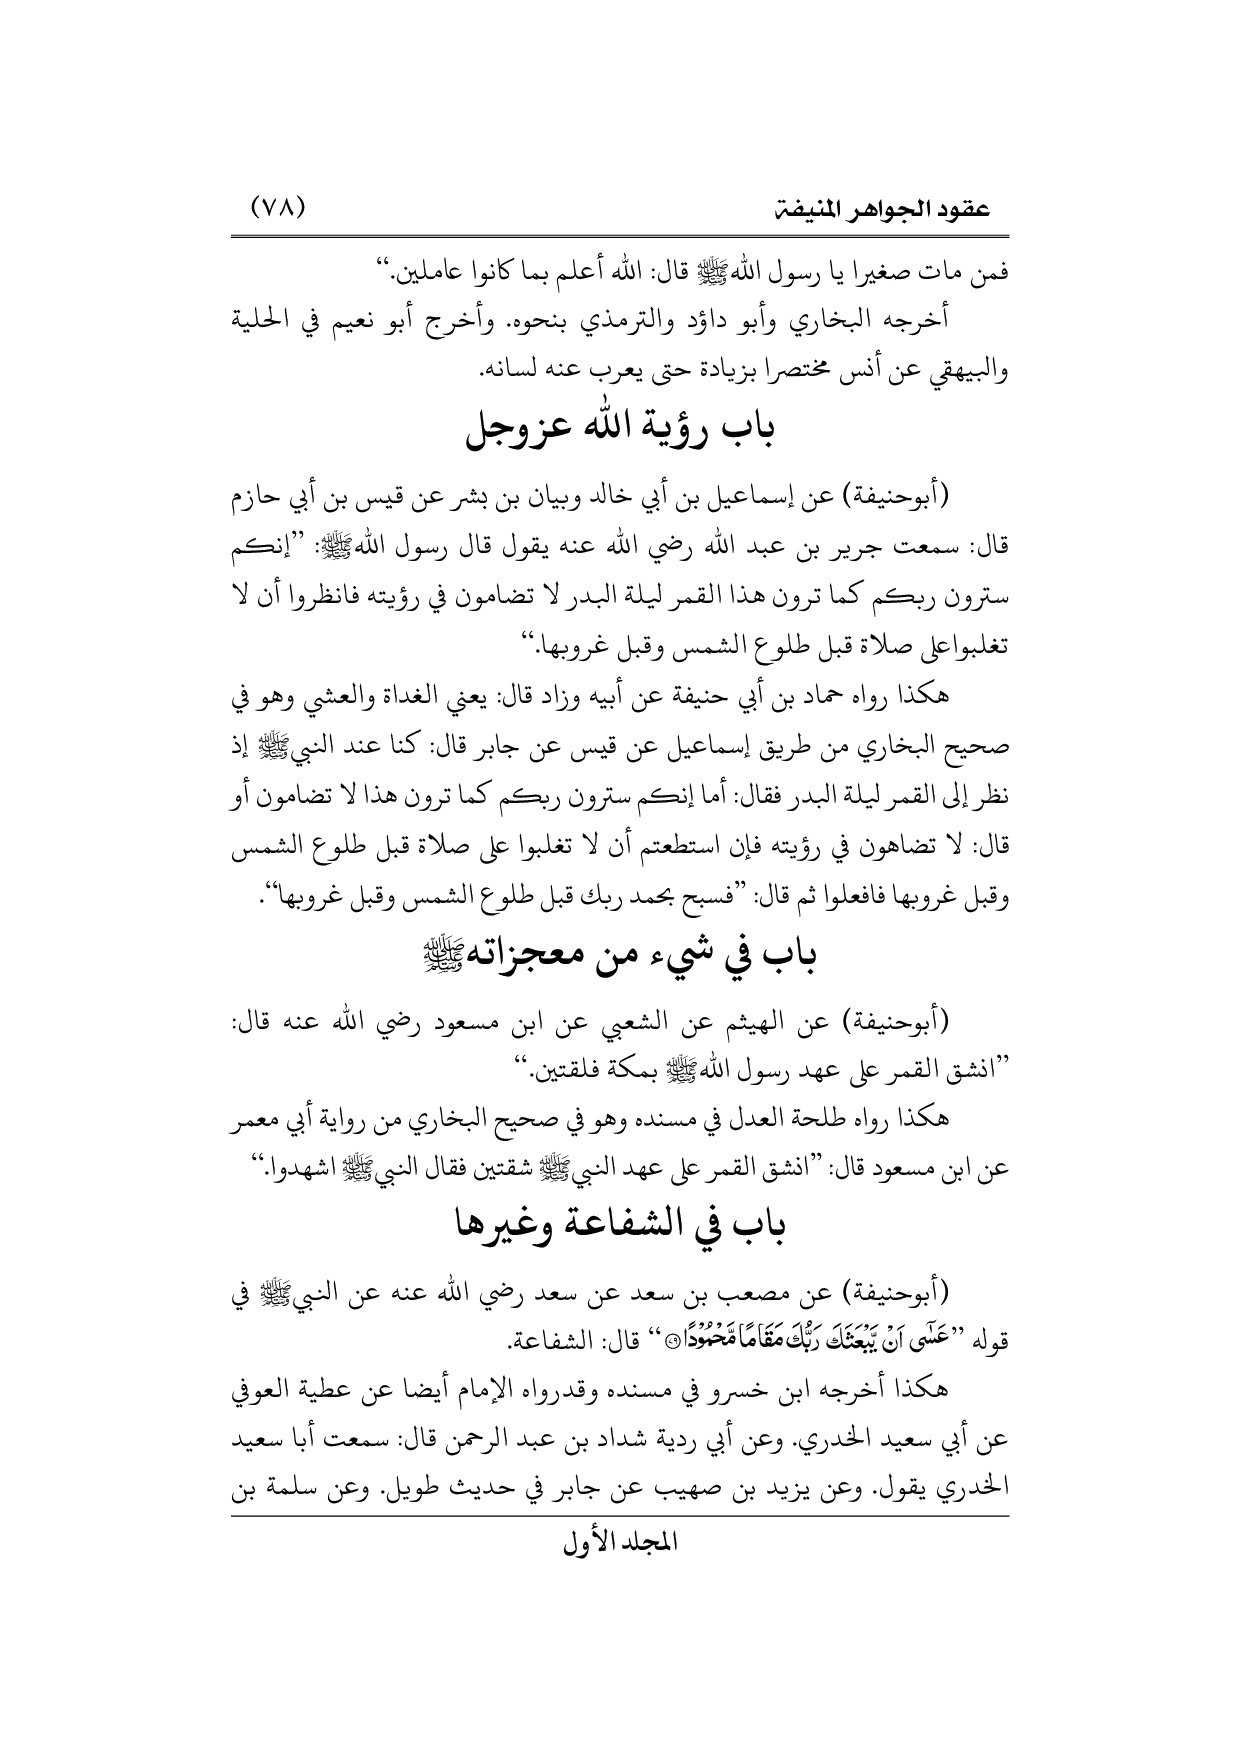 عقود الجواهر المنيفة (٧٨)
فمن مات صغيرا يا رسول اللهﷺ قال: الله أعلم بما كانوا عاملين.“
أخرجه البخاري وأبو داؤد والترمذي بنحوه. وأخرج أبو نعيم في الحلية
والبيهقي عن أنس مختصرا بزيادة حتى يعرب عنه لسانه.
باب رؤية الله عزوجل
(أبوحنيفة) عن إسماعيل بن أبي خالد وبيان بن بشر عن قيس بن أبي حازم
قال: سمعت جرير بن عبد الله رضي الله عنه يقول قال رسول اللهﷺ: ”إنكم
سترون ربكم كما ترون هذا القمر ليلة البدر لا تضامون في رؤيته فانظروا أن لا
تغلبواعلى صلاة قبل طلوع الشمس وقبل غروبها.“
هكذا رواه حماد بن أبي حنيفة عن أبيه وزاد قال: يعني الغداة والعشي وهو في
صحيح البخاري من طريق إسماعيل عن قيس عن جابر قال: كنا عند النبيﷺ إذ
نظر إلى القمر ليلة البدر فقال: أما إنكم سترون ربكم كما ترون هذا لا تضامون أو
قال: لا تضاهون في رؤيته فإن استطعتم أن لا تغلبوا على صلاة قبل طلوع الشمس
وقبل غروبها فافعلوا ثم قال: ”فسبح بحمد ربك قبل طلوع الشمس وقبل غروبها“.
باب في شيء من معجزاتهﷺ
(أبوحنيفة) عن الهيثم عن الشعبي عن ابن مسعود رضي الله عنه قال:
”انشق القمر على عهد رسول اللهﷺ بمكة فلقتين.“
هكذا رواه طلحة العدل في مسنده وهو في صحيح البخاري من رواية أبي معمر
عن ابن مسعود قال: ”انشق القمر على عهد النبيﷺ شقتين فقال النبيﷺ اشهدوا.“
باب في الشفاعة وغيرها
(أبوحنيفة) عن مصعب بن سعد عن سعد رضي الله عنه عن النبيﷺ في
قوله ”عَسٰٓى اَنْ يَّبْعَثَكَ رَبُّكَ مَقَامًا مَّحْمُوْدًا۝۷۹“ قال: الشفاعة.
هكذا أخرجه ابن خسرو في مسنده وقدرواه الإمام أيضا عن عطية العوفي
عن أبي سعيد الخدري. وعن أبي ردية شداد بن عبد الرحمن قال: سمعت أبا سعيد
الخدري يقول. وعن يزيد بن صهيب عن جابر في حديث طويل. وعن سلمة بن
المجلد الأول